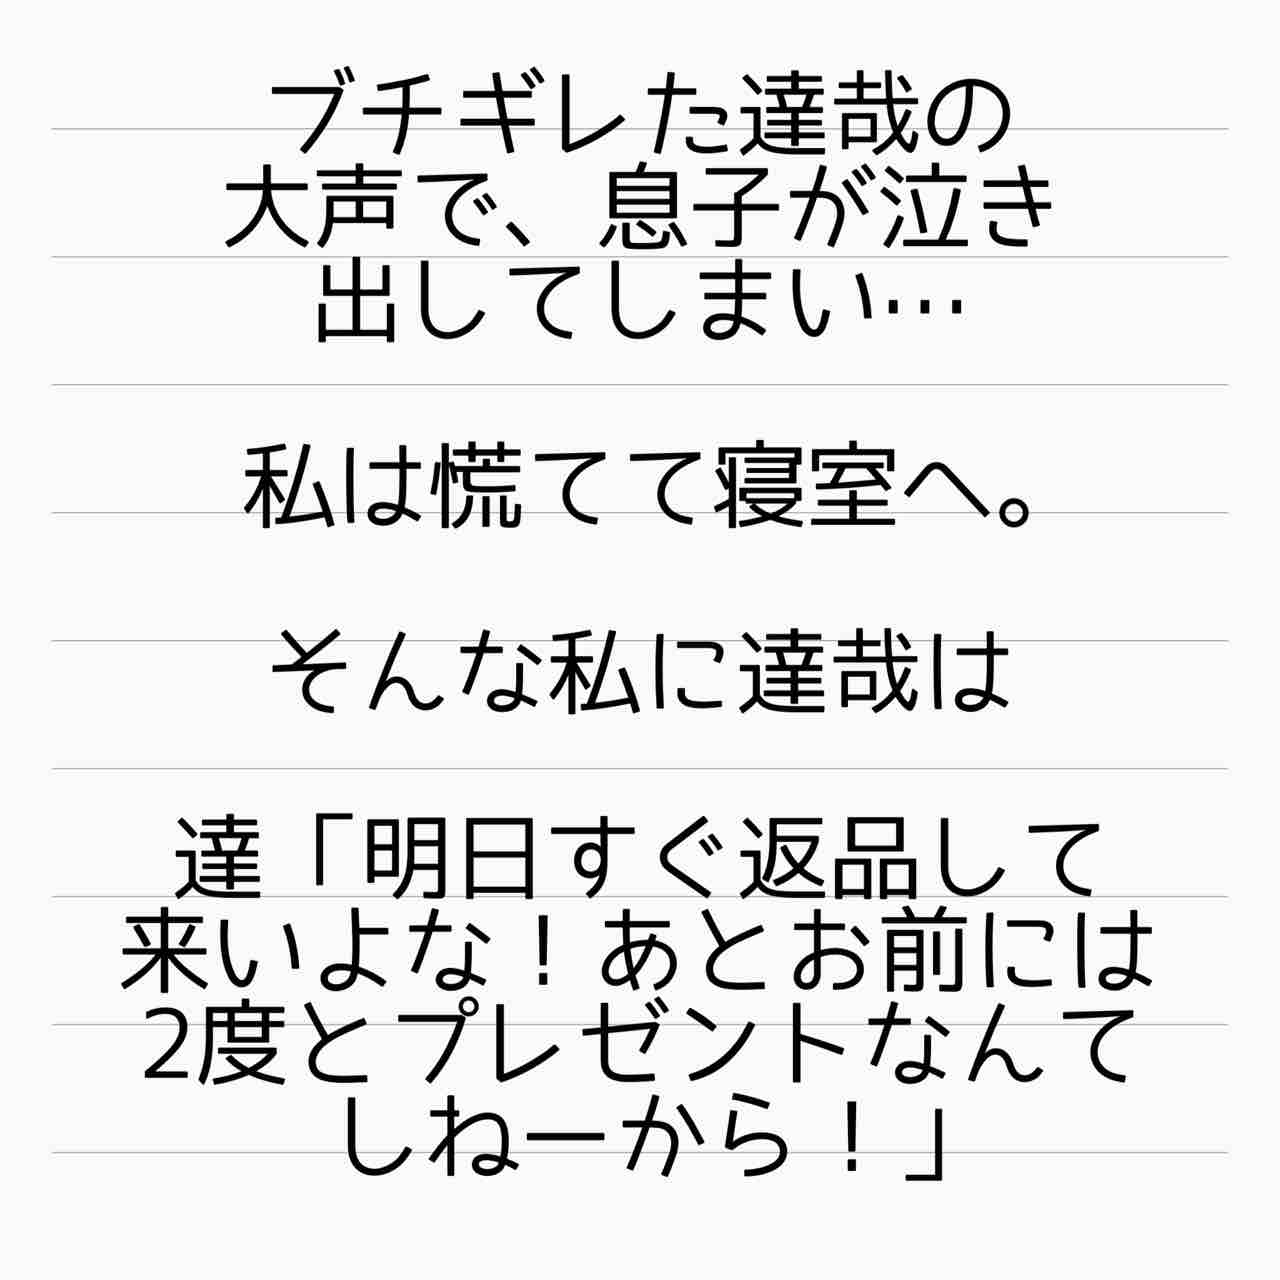 ブチギレた達哉の
大声で、息子が泣き
出してしまい…
私は慌てて寝室へ。
そんな私に達哉は
達「明日すぐ返品して
来いよな！あとお前には
2度とプレゼントなんて
しねーから！」